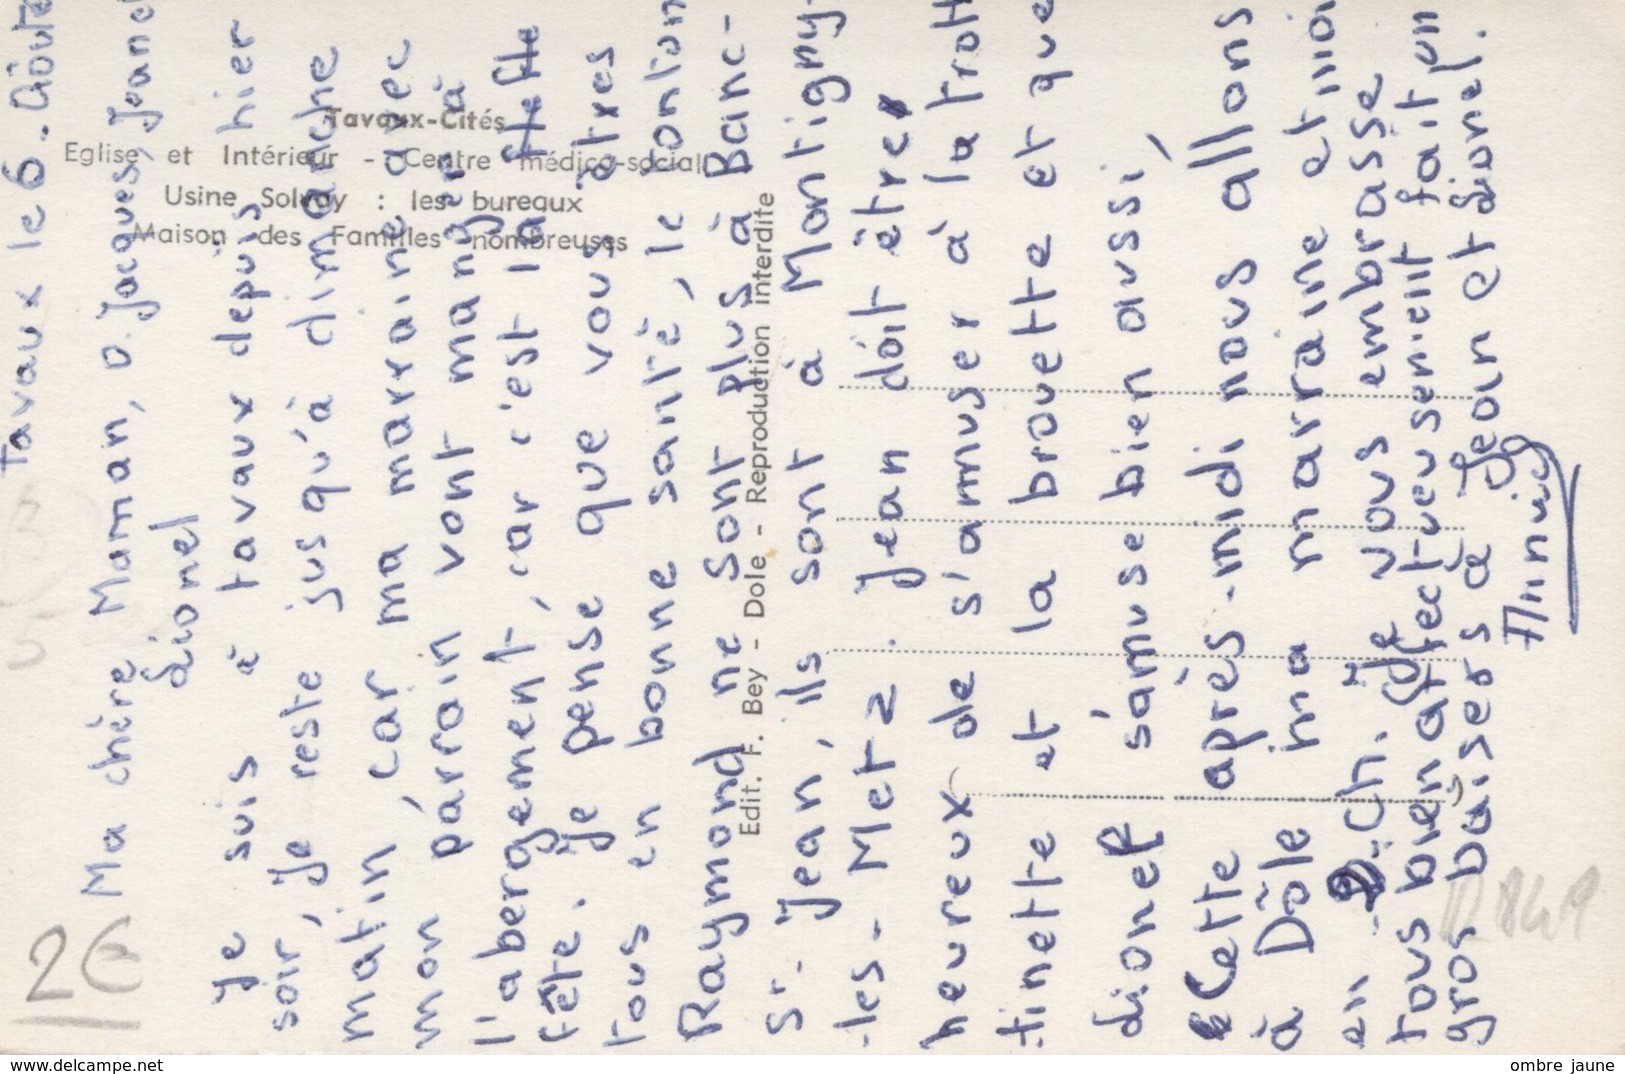 Tavaux le 6. Aôute
Ma chère Maman, D. Jacques, Jeanet
Lionel
Je suis à tavaux depuis hier
soir, Je reste jusqu'à dimanche
matin, car ma marraine avec
mon párrain vont manger à
l'abergement, car c'est la fte
fête. Je pense que vous êtres
tous en bonne santié, le tonton
Raymond ne sont plus à Banc-
St. Jean, ils sont à Montigny-
-les-Metz. Jean dôit être
heureux de s'amuser à la trott
-tinette et la brouette et que
dionel s'amuse bien aussi,
Cette après-midi nous allons
à Dôle ma marraine et moi
en Ch. Je vous embrasse
tous bien affectueusement fait un
gros baisers à Jean et Lionel.
Annie
Tavaux-Cités
Eglise et Intérieur - Centre médico-social
Usine Solvay : les bureaux
Maison des Familles nombreuses
Edit. F. Bey - Dole - Reproduction interdite
2€
www.delcampe.net
ombre jaune